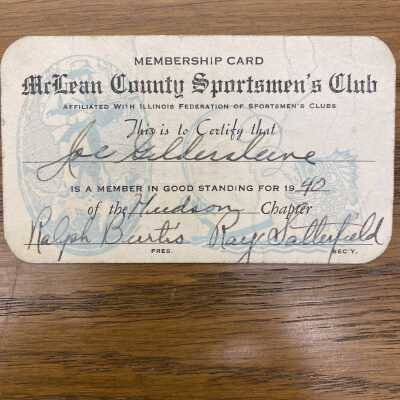 MEMBERSHIP CARD
McLean County Sportsmen's Club
AFFILIATED WITH ILLINOIS FEDERATION OF SPORTSMEN'S CLUBS
This is to Certify that
Joe Gildersleeve
IS A MEMBER IN GOOD STANDING FOR 1942
of the Hudson Chapter
Ralph Burtis Ray Satterfield
PRES. SEC'Y.